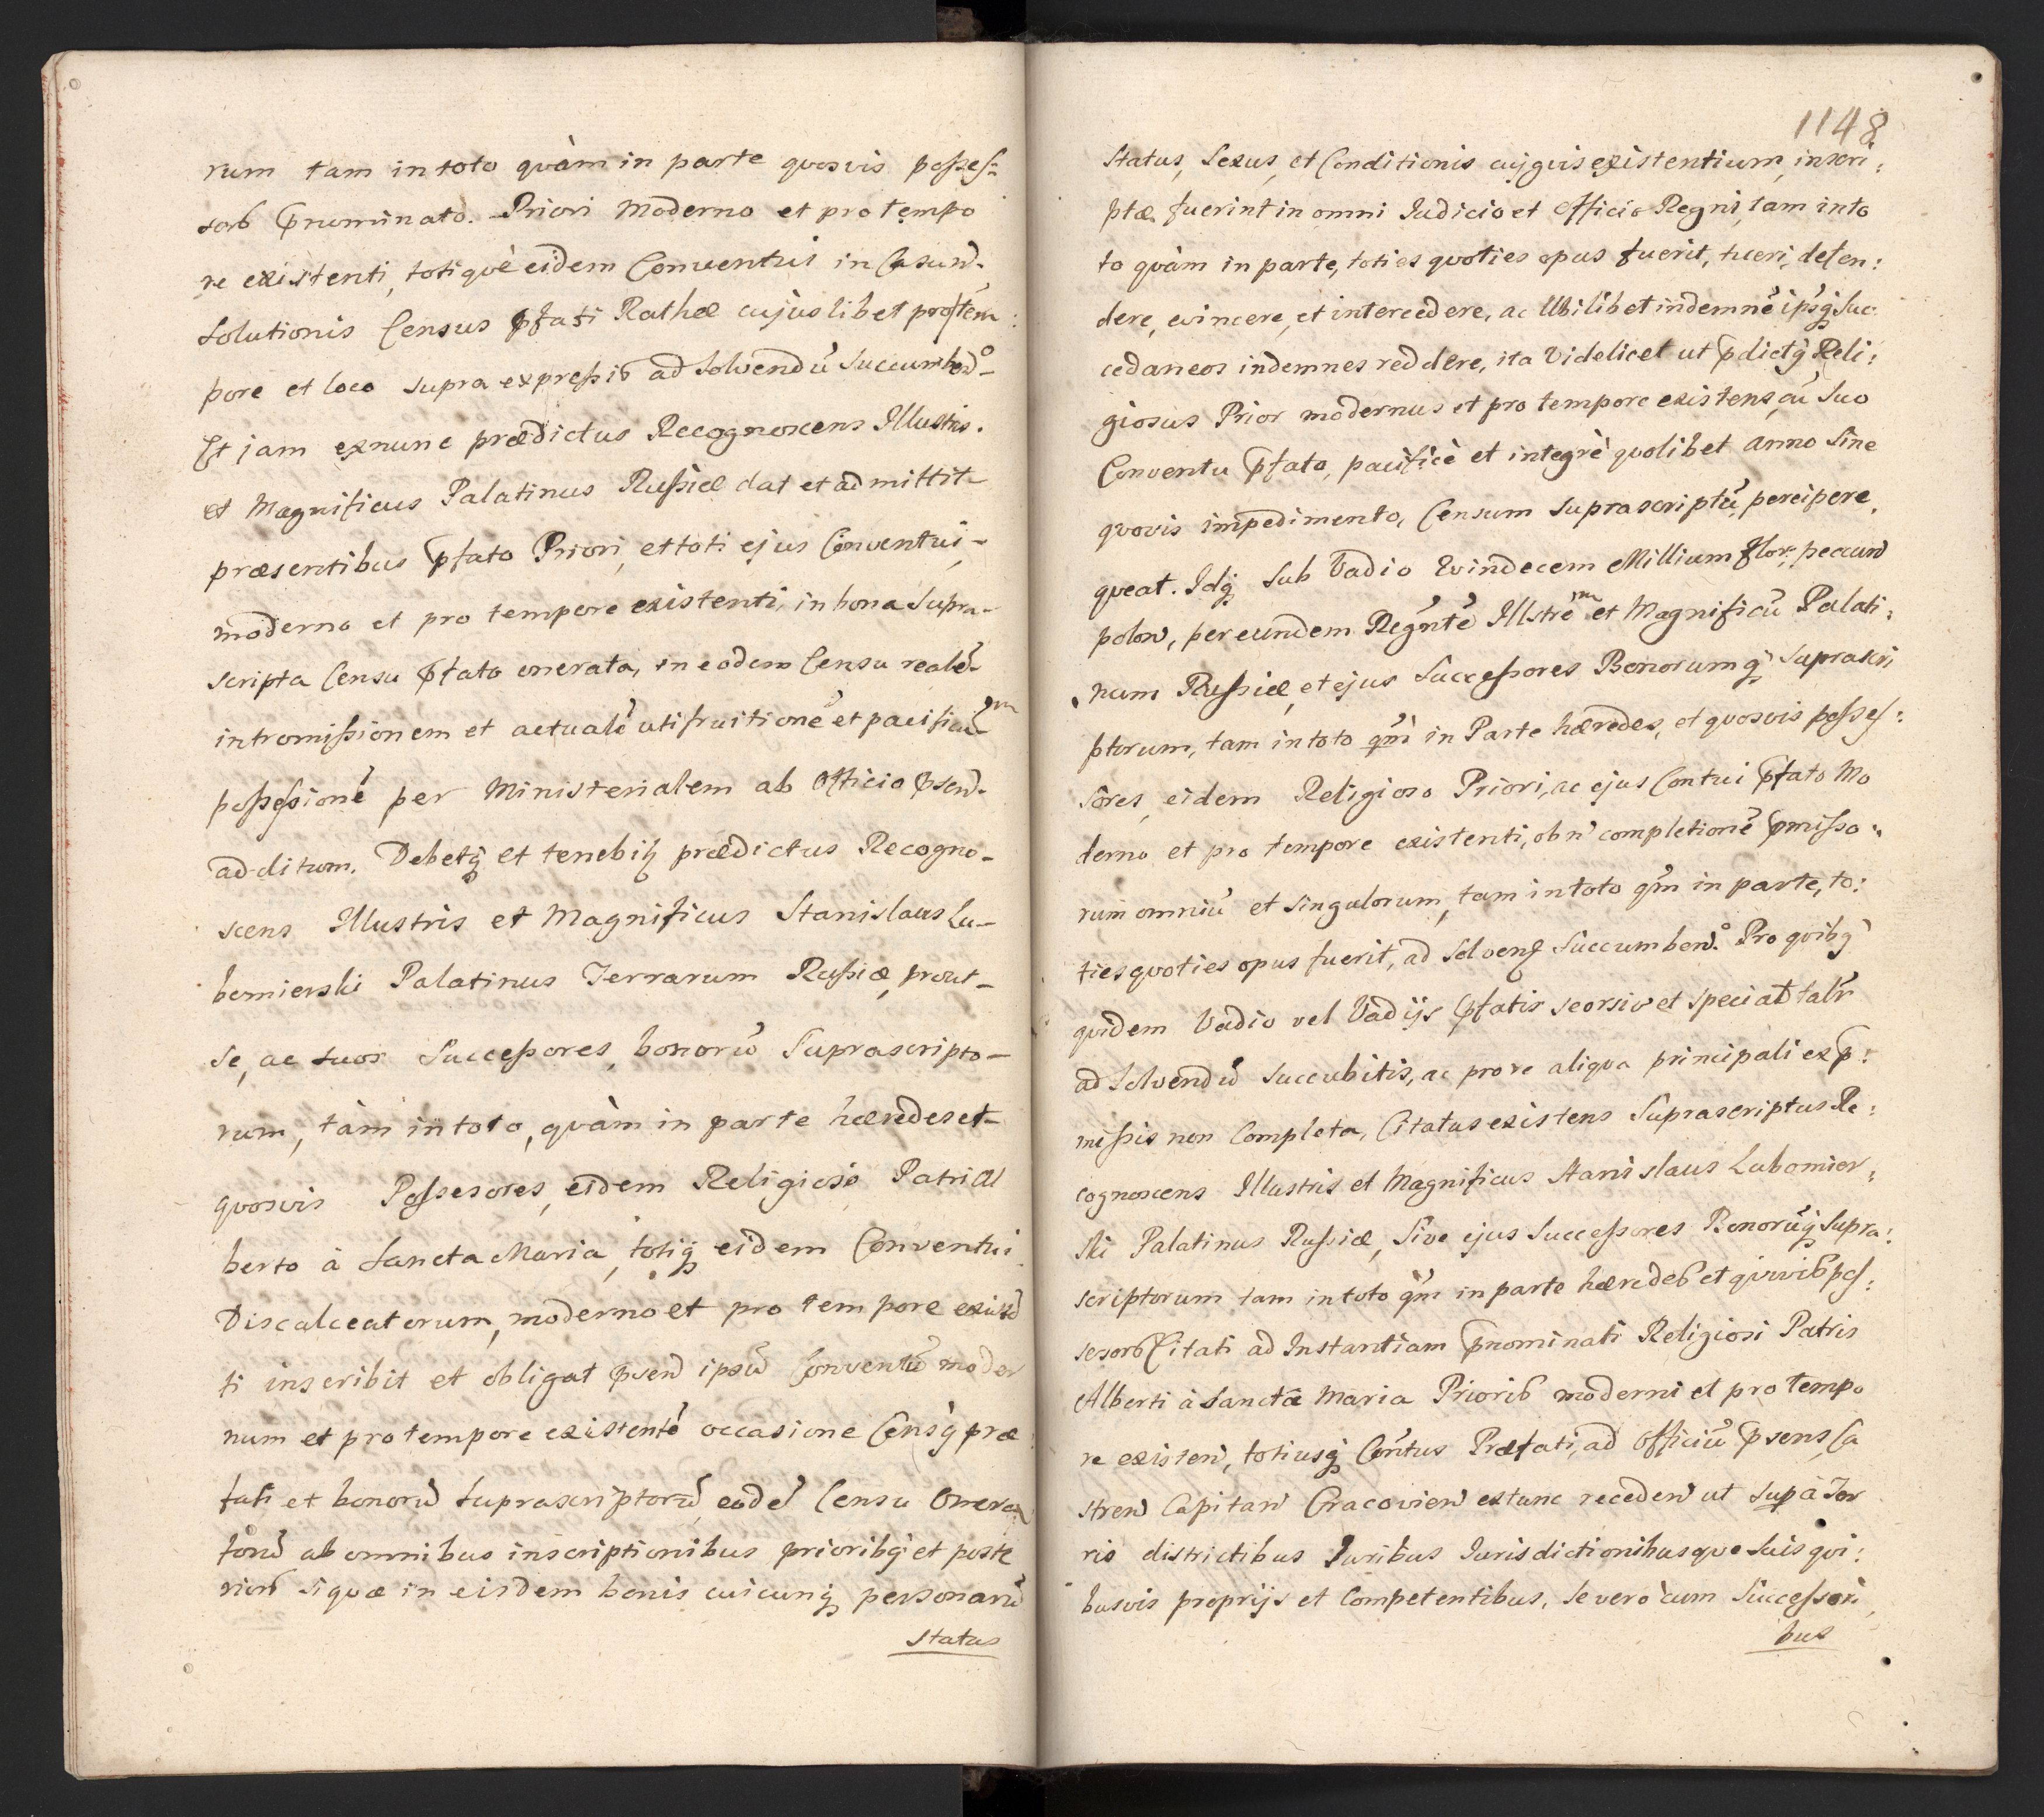 rum tam in toto quàm in parte quosvis posses-
sorb p̄nominato. Priori Moderno et pro tempo
re existenti, totiquè eidem Conventui in Casun̄.
solutionis Census p̄fati Rathæ cujuslibet pro tem:
pore et loco supra expressis ad solvendū succumben̄º-
Et jam exnunc prædictus Recognoscens Illustris.
et Magnificus Palatinus Russiæ dat et admittit-
præsentibus p̄fato Priori, et toti ejus Conventui,-
moderno et pro tempore existenti, in bona supra-
scripta Censu p̄fato onerata, in eodem Censu realē-
intromissionem et actualē utifruitionē et pacificam
possessionē per Ministerialem ab Officio p̄sen̄.
additum. Debetq̨ et tenebitꝫ prædictus Recogno-
scens Illustris et Magnificus Stanislaus Lu-
bomierski Palatinus Terrarum Russiæ, prout-
se, ac suos Successores, bonorū Suprascripto-
rum, tàm in toto, quàm in parte hæredes et-
quosvis Possesores, eidem Religioso Patri Al
berto à Sancta Maria, totiq̨ eidem Conventui
Discalceatorum, moderno et pro tempore existē
ti inscribit et obligat p̄sen̄ ipsū Conventū moder
num et pro tempore existentē occasione Censq̨ præ
fati et bonorū suprascriptorū, eodē Censu Onera
torū ab omnibus inscriptionibus prioribq̨ et poste
riorb siquæ in eisdem bonis cuicunq̨ personarū
status
1148
Status, Sexus, et Conditionis cujqvis existentium, inscri:
ptæ fuerint in omni Iudicio et Officio Regni, tam in to
to quàm in parte, toties quoties opus fuerit, tueri, defen:
dere, evincere, et intercedere, ac Ubilibet indemnē ipsq̨ Suc
cedaneos indemnes reddere, ita Videlicet ut p̄dictq̨ Reli:
giosus Prior modernus et pro tempore existens, cū Suo
Conventu p̄fato, pacificè et integrè quolibet anno Sine
quovis impedimento, Censum suprascriptū, percipere,
queat. Idq̨ sub Vadio Qvindecem Millium flor: pecun̄
polon̄, per eundem Regn̄tē Illstrēm et Magnificū Palati:
num Russiæ, et ejus Successores Bonorumq̨ suprascri
ptorum, tam in toto qm̄ in Parte hæredes, et quosvis posses:
sores, eidem Religioso Priori, ac ejus Contui p̄fato Mo
derno et pro tempore existenti, ob n̄ completionē p̄misso:
rum omniū et singulorum, tam in toto qm̄ in parte, to:
ties quoties opus fuerit, ad solvenꝫ Succumben̄º. Pro qvibq̨
qvidem Vadio vel Vadijs p̄fatis seorsiv et speciat̄ talr̄
ad Solvendū succubitis, ac pro re aliqva principali ex p̄:
missis non Completa, Citatus existens Suprascriptus Re:
cognoscens Illustris et Magnificus Stanislaus Lubomier:
ski Palatinus Russiæ, Sive ejus Successores Bonorūq̨ Supra:
scriptorum tam in toto qm̄ in parte hæredeb et qvivib pos:
sesorb Citati ad Instantiam p̄nominati Religiosi Patris
Alberti à Sancta Maria Priorib moderni et pro tempo
re existen̄, totiusq̨ Con̄tus Præfati, ad Officiū p̄sens Ca
stren̄ Capitan̄ Cracovien̄ extunc receden̄ ut sup à Ter
ris districtibus Iuribus Iurisdictionibusque suis qvi:
busvis proprijs et Competentibus, se verò cum Successori
bus